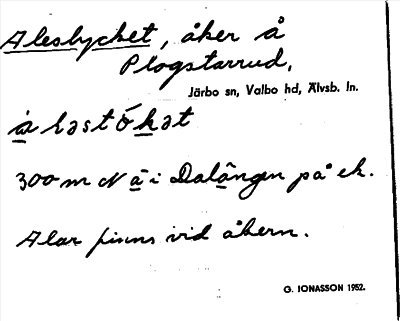 Aleslycket, åker å
Plogstarrud,
Järbo sn, Valbo hd, Älvsb. ln.
300 m N ä i Dalängen på ek.
Alar finns vid åkern.
G. IONASSON 1952.